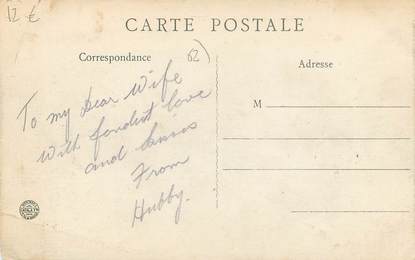 12 €
CARTE POSTALE
Correspondance
62)
Adresse
M
To my Dear Wife
With fondest love
and kisses
From
Hubby.